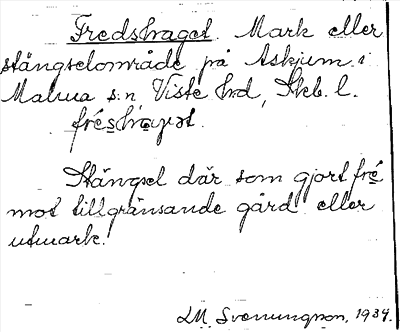 Fredshaget. Mark eller
stängselområde på Askjum i
Malma s:n Viste hd, Skb. l.
fréshagət.
Stängsel där som gjort fré
mot tillgränsande gård eller
utmark.
LM. Svenungson, 1934.